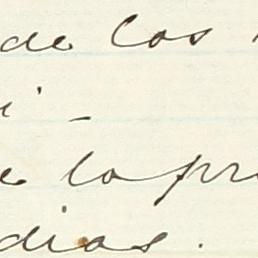 de los
i -
e la pr
dias.